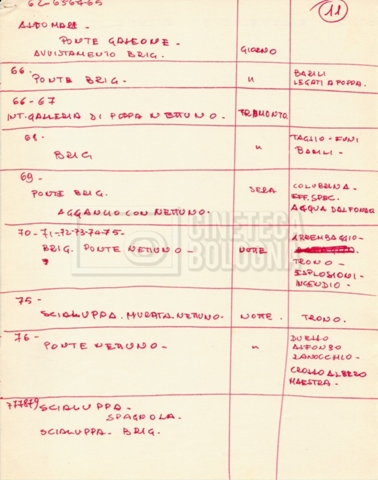 62-63-64-65
11
ALDOMARE
PONTE GALEONE -
AVVISTAMENTO BRIG.
GIORNO
66 -
PONTE BRIG.
"
BARILI
LEGATI A POPPA.
66-67
INT. GALLERIA DI POPPA NETTUNO -
TRAMONTO.
68 -
BRIG
"
TAGLIO - FUNI
BARILI -
69 -
PONTE BRIG.
AGGANCIO CON NETTUNO.
SERA
COLUBRINA -
EFF. SPEC.
ACQUA DAL FONDO
70-71-72-73-74-75-
BRIG. PONTE NETTUNO -
NOTTE
ARREMBAGGIO -
TRONO -
ESPLOSIONI -
INCENDIO -
75 -
SCIALUPPA. MURATA NETTUNO -
NOTTE.
TRONO.
76 -
PONTE NETTUNO -
"
DUELLO
ALFONSO
ZANOCCHIO -
CROLLO ALBERO
MAESTRA -
77 78 79
SCIALUPPA -
SPAGNOLA.
SCIALUPPA. BRIG.
CINETECA
BOLOGNA